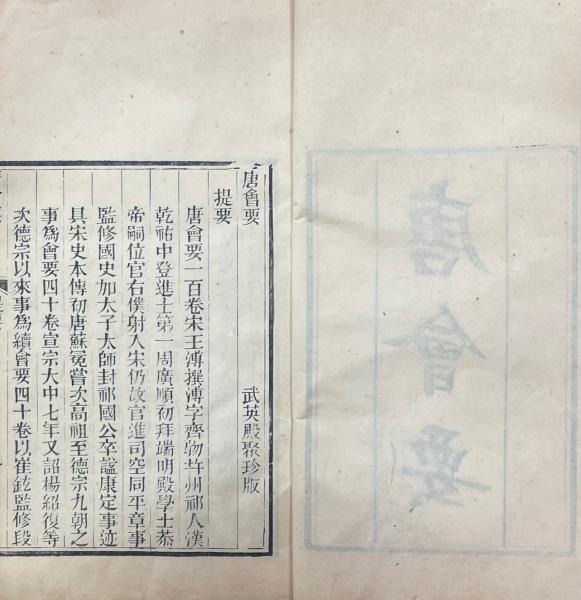 唐會要
唐會要 武英殿聚珍版
提要
唐會要一百卷宋王溥撰溥字齊物并州祁人漢
乾祐中登進士第一周廣順初拜端明殿學士恭
帝嗣位官右僕射入宋仍故官進司空同平章事
監修國史加太子太師封祁國公卒諡康定事迹
具宋史本傳初唐蘇冕嘗次高祖至德宗九朝之
事爲會要四十卷宣宗大中七年又詔楊紹復等
次德宗以來事爲續會要四十卷以崔鉉監修段